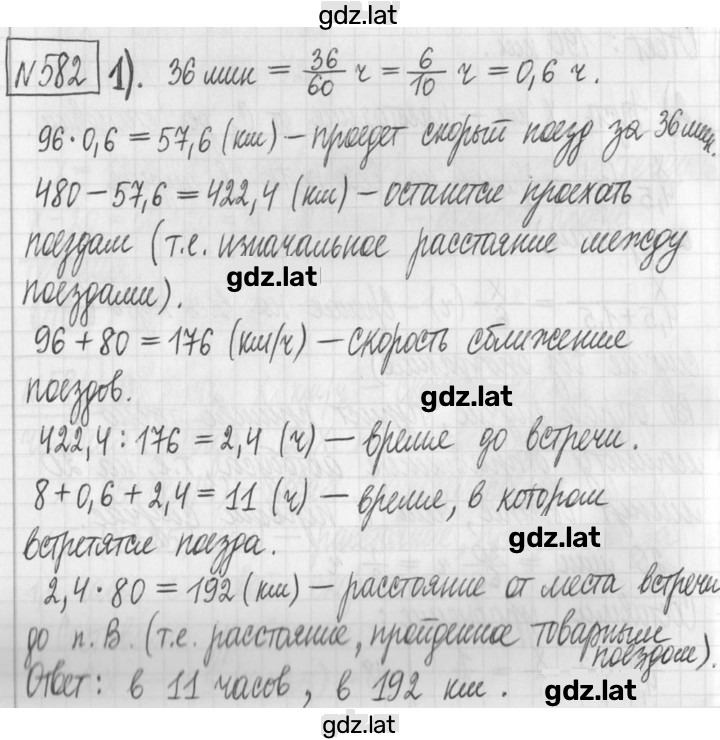 gdz.lat
№582 1). 36 мин = 36/60 ч = 6/10 ч = 0,6 ч.
96·0,6 = 57,6 (км) – проедет скорый поезд за 36 мин.
480 – 57,6 = 422,4 (км) – останется проехать
поездам (т.е. изначальное расстояние между
gdz.lat
поездами).
96 + 80 = 176 (км/ч) – скорость сближения
gdz.lat
поездов.
422,4 : 176 = 2,4 (ч) – время до встречи.
8 + 0,6 + 2,4 = 11 (ч) – время, в котором
gdz.lat
встретятся поезда.
2,4 · 80 = 192 (км) – расстояние от места встречи
до п. В. (т.е. расстояние, пройденное товарным
поездом).
Ответ: в 11 часов, в 192 км.
gdz.lat
gdz.lat